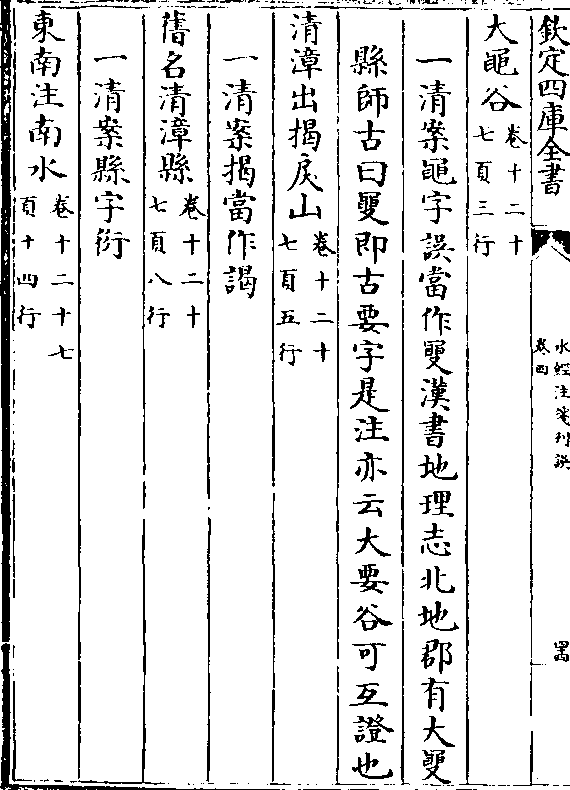 欽定四庫全書
水經注箋刋誤
卷四
大黽谷卷十二十
七頁三行
一清案黽字誤當作㚇漢書地理志北地郡有大㚇
縣師古曰㚇即古要字是注亦云大要谷可互證也
清漳出揭戾山卷十二十
七頁五行
一清案揭當作謁
舊名清漳縣卷十二十
七頁八行
一清案縣字衍
東南注南水卷十二十七
頁十四行